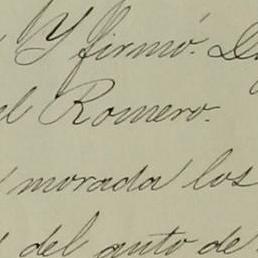 Y firmó.
l Romero.
morada los
del auto de